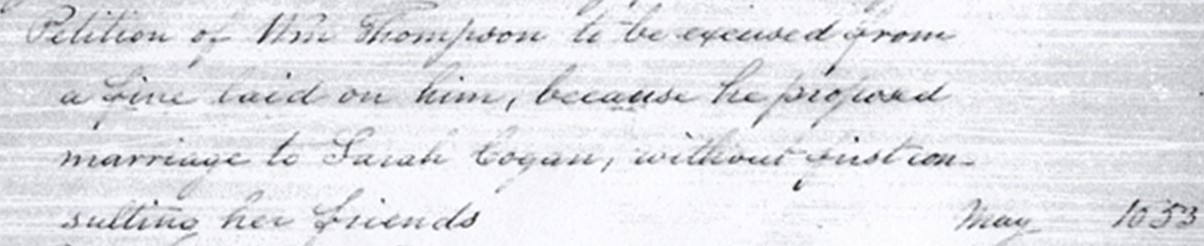 Petition of Wm Thompson to be excused from
a fine laid on him, because he proposed
marriage to Sarah Cogan, without first con-
sulting her friends May 1653